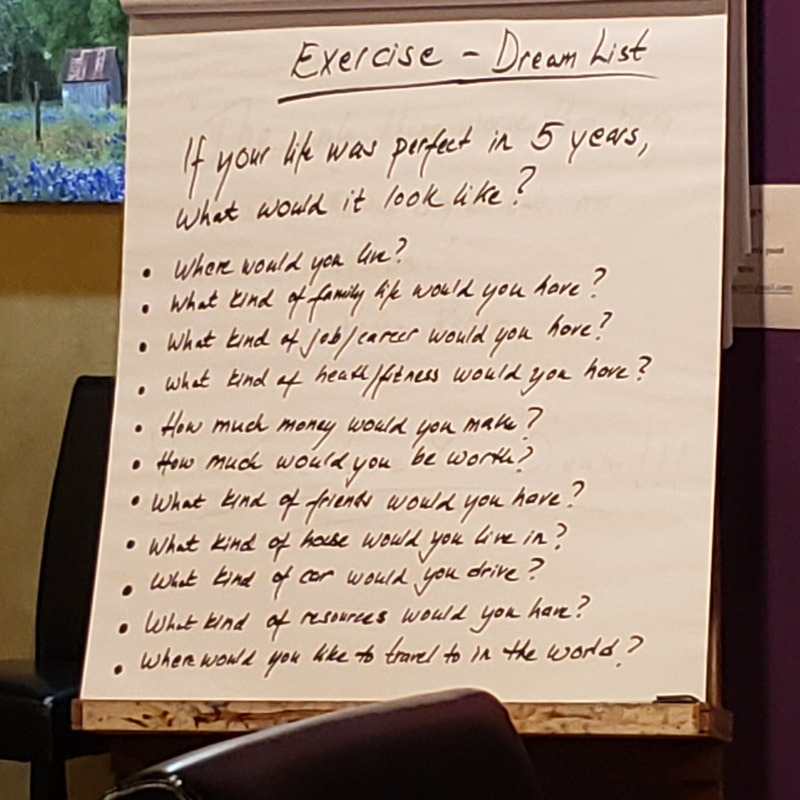 Exercise - Dream List
If your life was perfect in 5 years,
what would it look like?
• Where would you live?
• What kind of family life would you have?
• What kind of job/career would you have?
• What kind of health/fitness would you have?
• How much money would you make?
• How much would you be worth?
• What kind of friends would you have?
• What kind of house would you live in?
• What kind of car would you drive?
• What kind of resources would you have?
• Where would you like to travel to in the world?